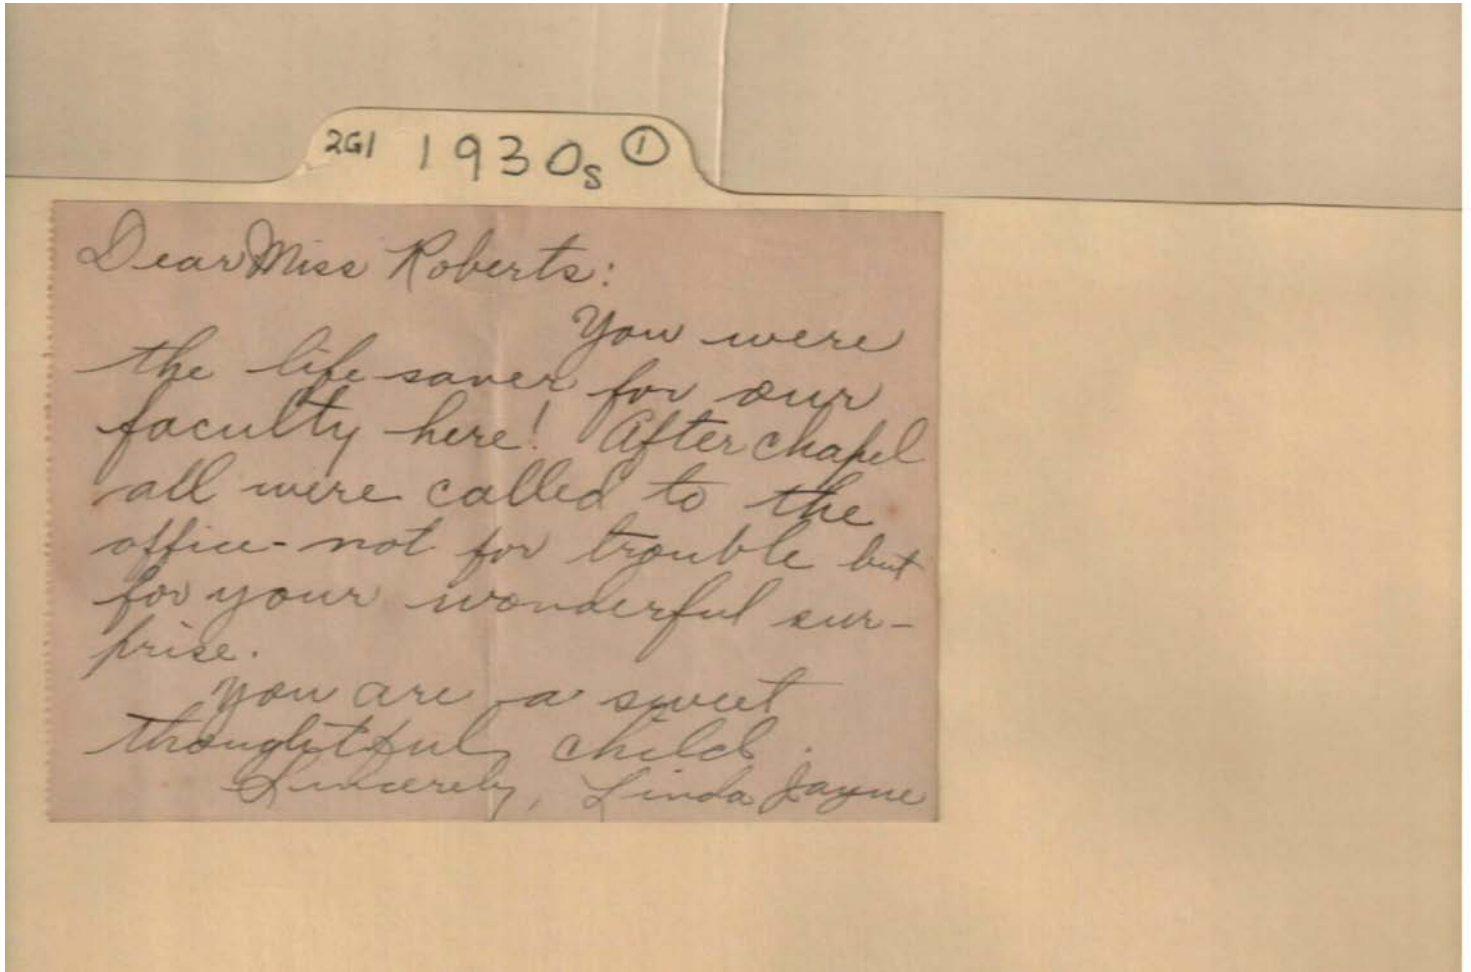 2G1 1930s ①
Dear Miss Roberts:
You were
the life saver for our
faculty here! After chapel
all were called to the
office - not for trouble but
for your wonderful sur-
prise.
You are a sweet
thoughtful child.
Sincerely, Linda Jayne